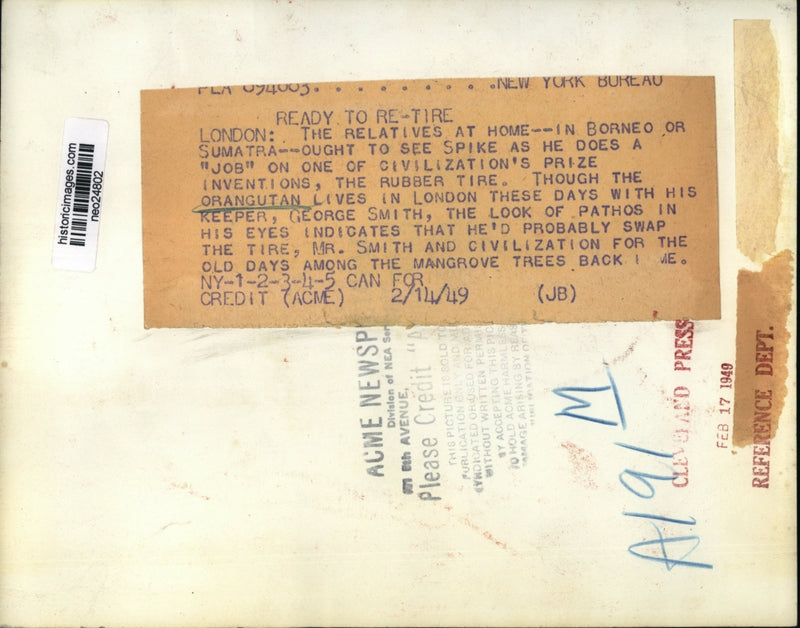 historicimages.com
neo24802
NEW YORK BUREAU
READY TO RE-TIRE
LONDON: THE RELATIVES AT HOME--IN BORNEO OR
SUMATRA--OUGHT TO SEE SPIKE AS HE DOES A
"JOB" ON ONE OF CIVILIZATION'S PRIZE
INVENTIONS, THE RUBBER TIRE. THOUGH THE
ORANGUTAN LIVES IN LONDON THESE DAYS WITH HIS
KEEPER, GEORGE SMITH, THE LOOK OF PATHOS IN
HIS EYES INDICATES THAT HE'D PROBABLY SWAP
THE TIRE, MR. SMITH AND CIVILIZATION FOR THE
OLD DAYS AMONG THE MANGROVE TREES BACK ME.
NY-1-2-3-4-5 CAN FOR
CREDIT (ACME) 2/14/49 (JB)
ACME NEWSP
Division of NEA Ser
8th AVENUE,
Please Credit "A
THIS PICTURE IS SOLD TO
PUBLICATION ONLY AND MU
SYNDICATED OR USED FOR AD
WITHOUT WRITTEN PERMI
BY ACCEPTING THIS PIC
TO HOLD ACME HARMLESS
DAMAGE ARISING BY REAS
A191 M
CLEVELAND PRESS
FEB 17 1949
REFERENCE DEPT.